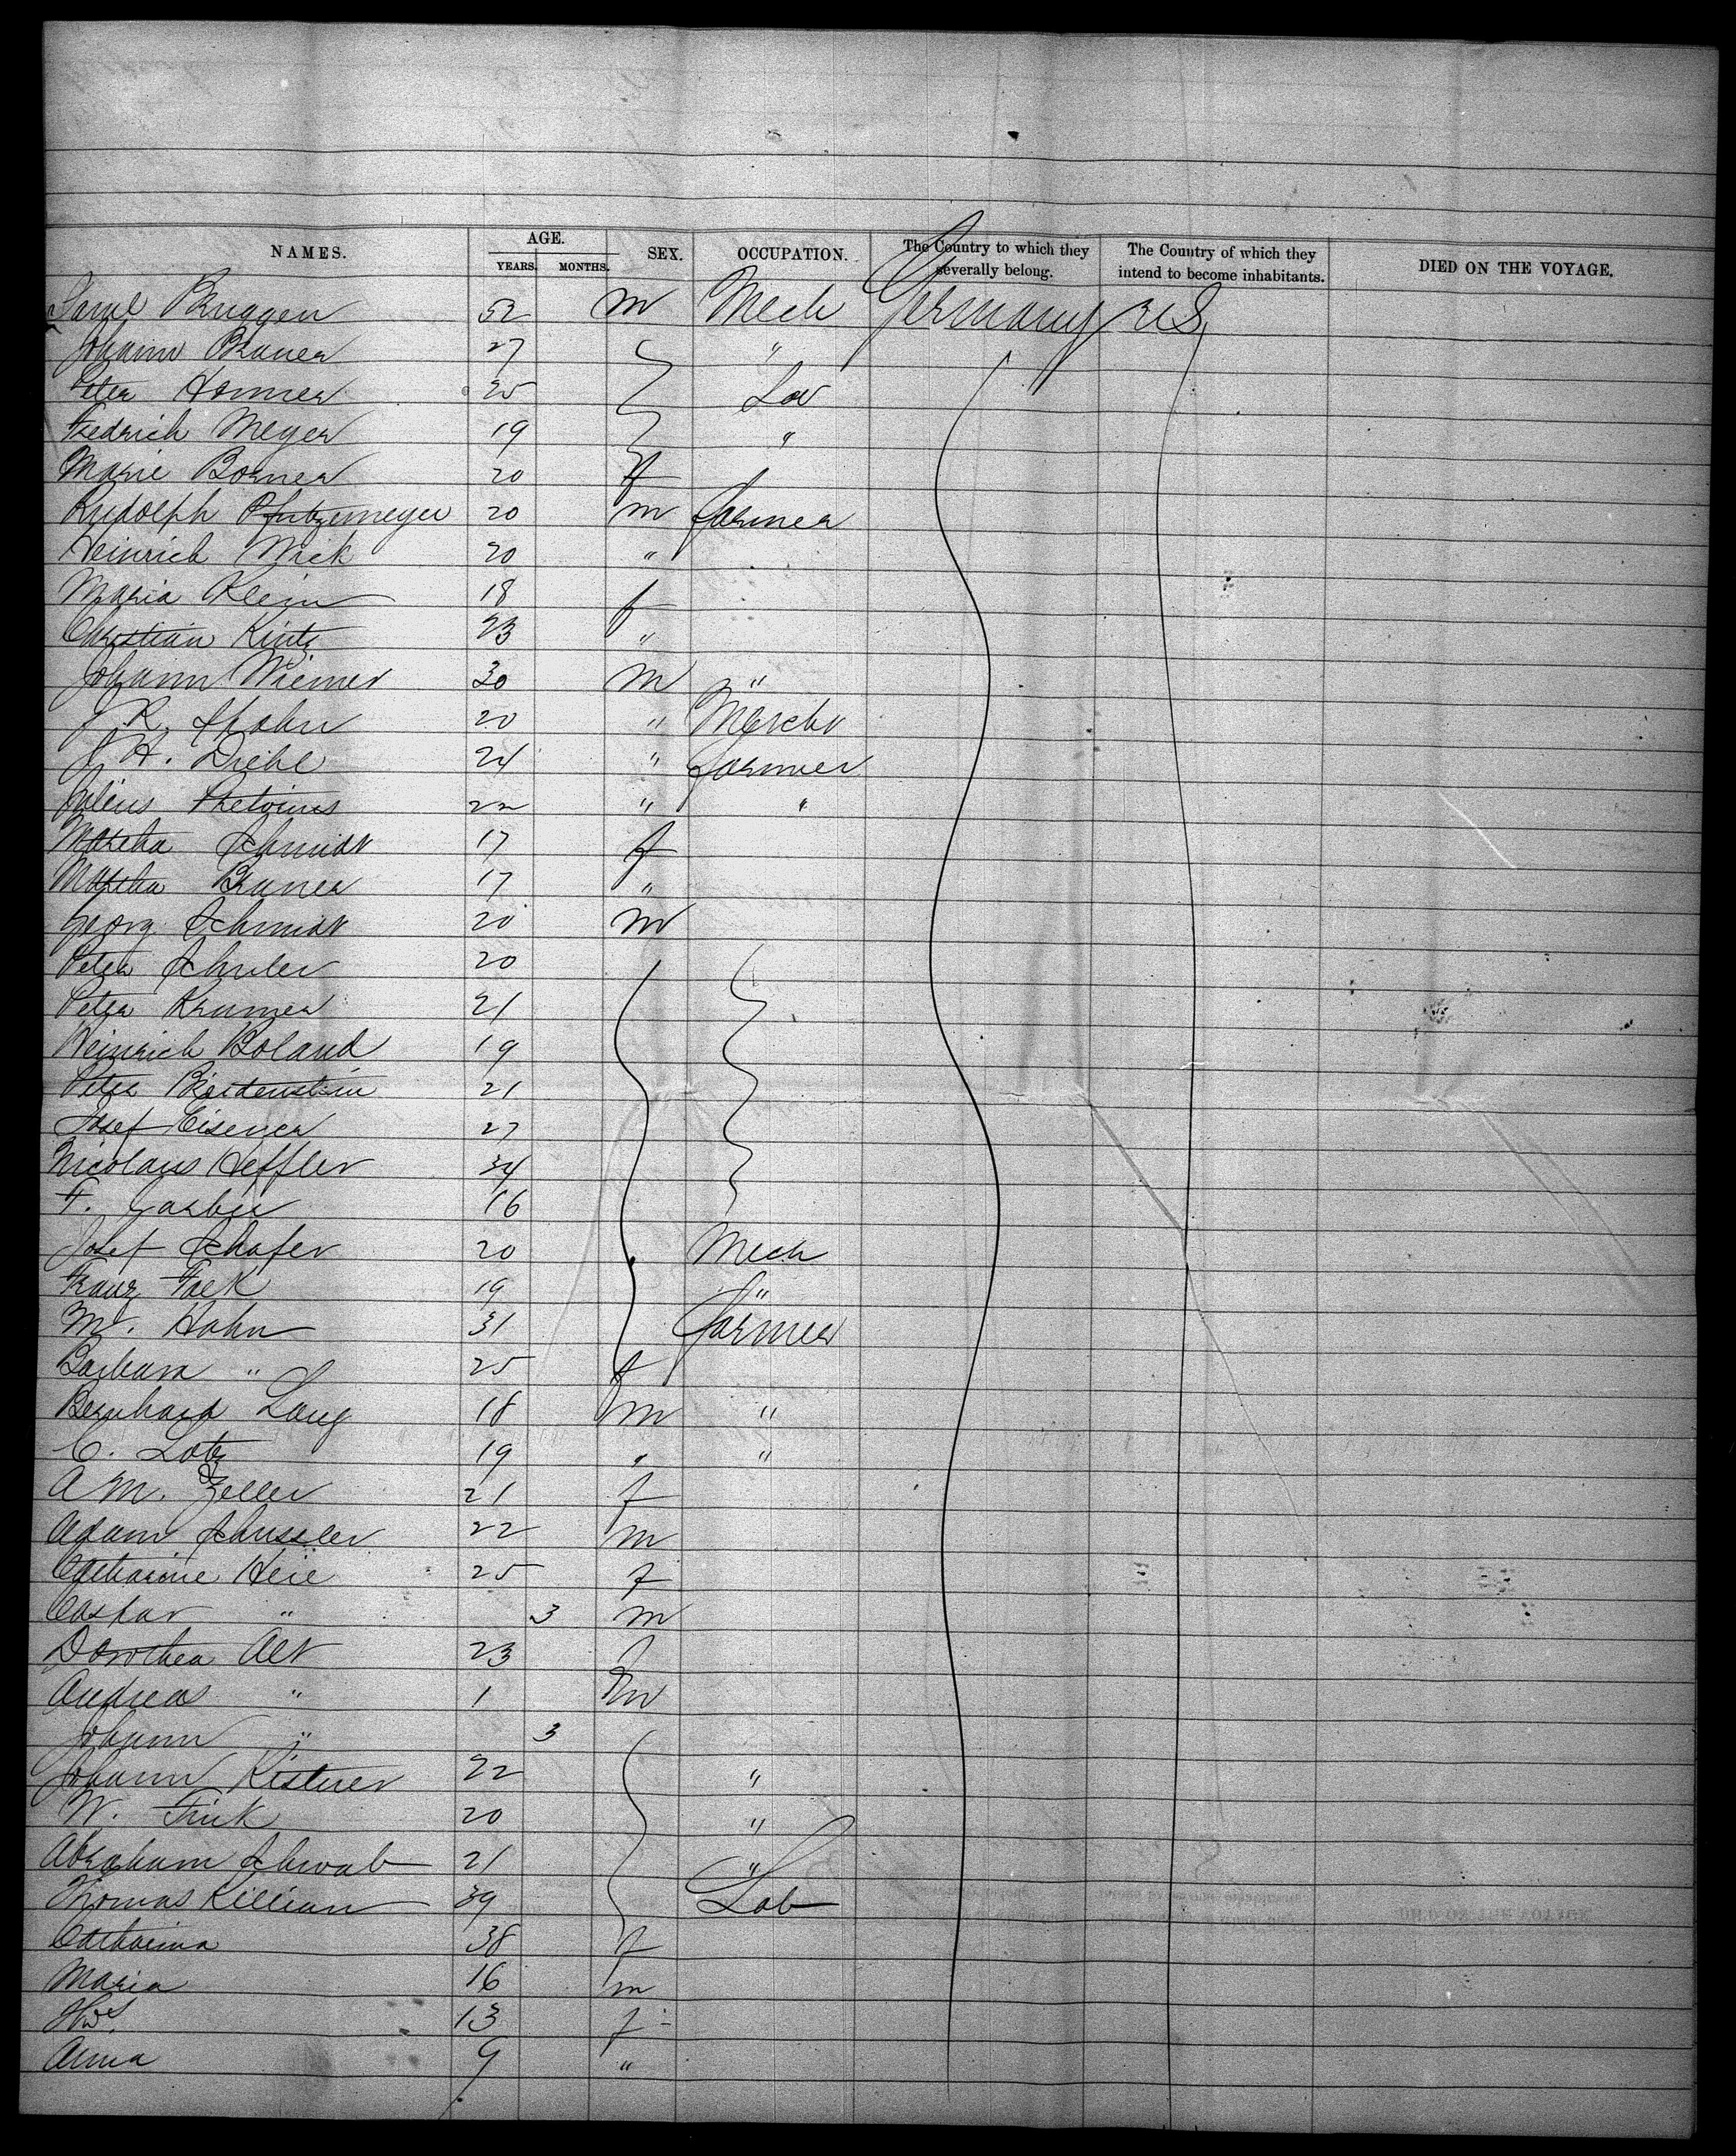 NAMES. AGE. YEARS. MONTHS. SEX. OCCUPATION. The Country to which they severally belong. The Country of which they intend to become inhabitants. DIED ON THE VOYAGE.
Bruggen 52 m Mech Germany U.S.
Johann Bruner 27 "
Peter Hommer 25 Lab
Fredrich Meyer 19 "
Marie Borner 20 f
Rudolph Pfutzemeyer 20 m farmer
Heinrich Mick 20 "
Maria Klein 18 f
Christian Kintz 23 "
Johann Wiemer 30 m "
J. R. Spohn 20 " Mercht
J. H. Diehl 24 " farmer
Julius 22 " "
Martha Schmidt 17 f
Martha Bruner 17 "
Georg Schmidt 20 m
Peter Schuler 20
Peter Krumer 21
Heinrich Boland 19
Peter Breidenstein 21
Josef Eisener 27
Nicolaus Heffler 34
F. 16
Josef Schafer 20 Mech
Franz Fack 19 "
M. Hahn 31 farmer
Barbara " 25 f
Bernhard Lang 18 m "
C. Lotz 19 " "
A M. Zeller 21 f
Adam Schussler 22 m
Catharine Heie 25 f
Caspar " 3 m
Dorothea Alt 23 f
Andreas " 1 m
Johann " 3
Johann Kistner 22 "
W. Fink 20 "
Abraham Schwab 21 "
Thomas Killian 39 Lab
Catharina 38 f
Maria 16 m
13 f
Anna 9 "